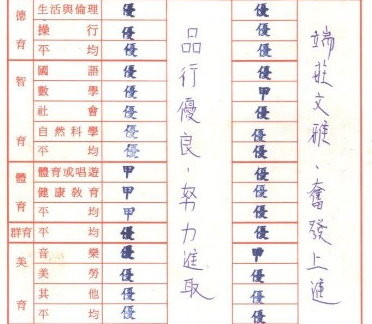 德育
生活與倫理 優 優
操行 優 優
平均 優 優
智育
國語 優 優
數學 優 甲
社會 優 優
自然科學 優 優
平均 優 優
體育
體育或唱遊 甲 優
健康教育 甲 優
平均 甲 優
群育 平均 優 優
美育
音樂 優 甲
美勞 優 優
其他 優 優
平均 優 優
品行優良、努力進取
端莊文雅、奮發上進